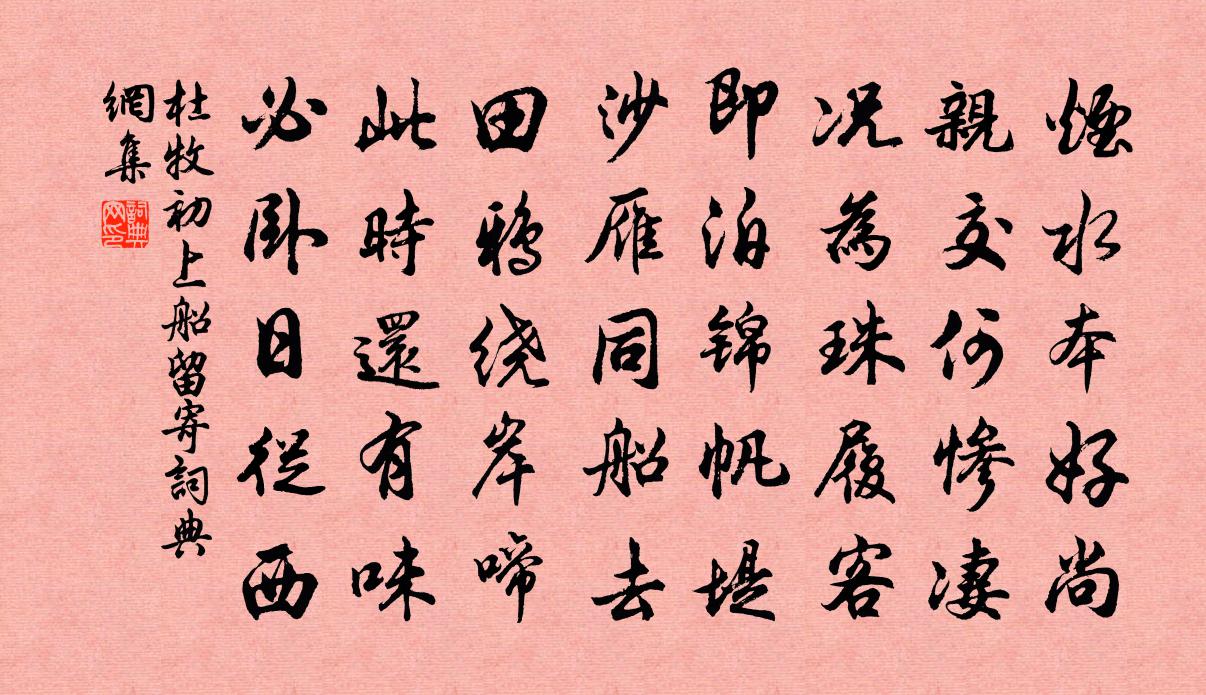 煙水本好尚
親交何慘凄
況為珠履客
即泊锦帆堤
沙雁同船去
田鸦绕岸啼
此時還有味
必卧日從西
杜牧初上船留寄詞典
網集
詞典網印